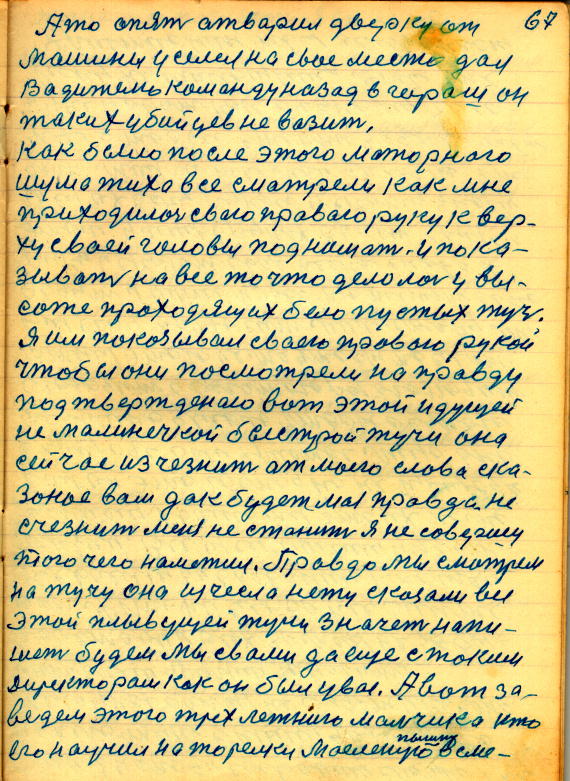 67
А то опят атварил дверку от
машины у селся на свое место дал
Вадителю команду назад в гераш он
таких убойцев не вазит,
как было после этого маторного
шума тиха все сматрели как мне
приходилос сваго праваго руку к вер-
ху своей головы поднимат. и пока-
зыват на все то что делолос у вы-
соте проходящих бело пустых туч.
Я им покозывал сваего правого рукой
чтобы они посмотрели на правду
подтвержденаю вот этой идущей
не малинечкой быстрой тучи она
сейчас изчезнит ат моего слова ска-
заное вам дак будет моя правда. не
счезнит меня не станит я не совершу
того чего наметил. Правдо мы смотрем
на тучу она изчесла нету сказали вы
этой плывущей тучи значет напи-
шем будем мы свами да еще стоким
директорам как он был увас. А вот за-
ведем этого трех летниго малчика кто
пылинку
его научил на торелки маеленкую всме-